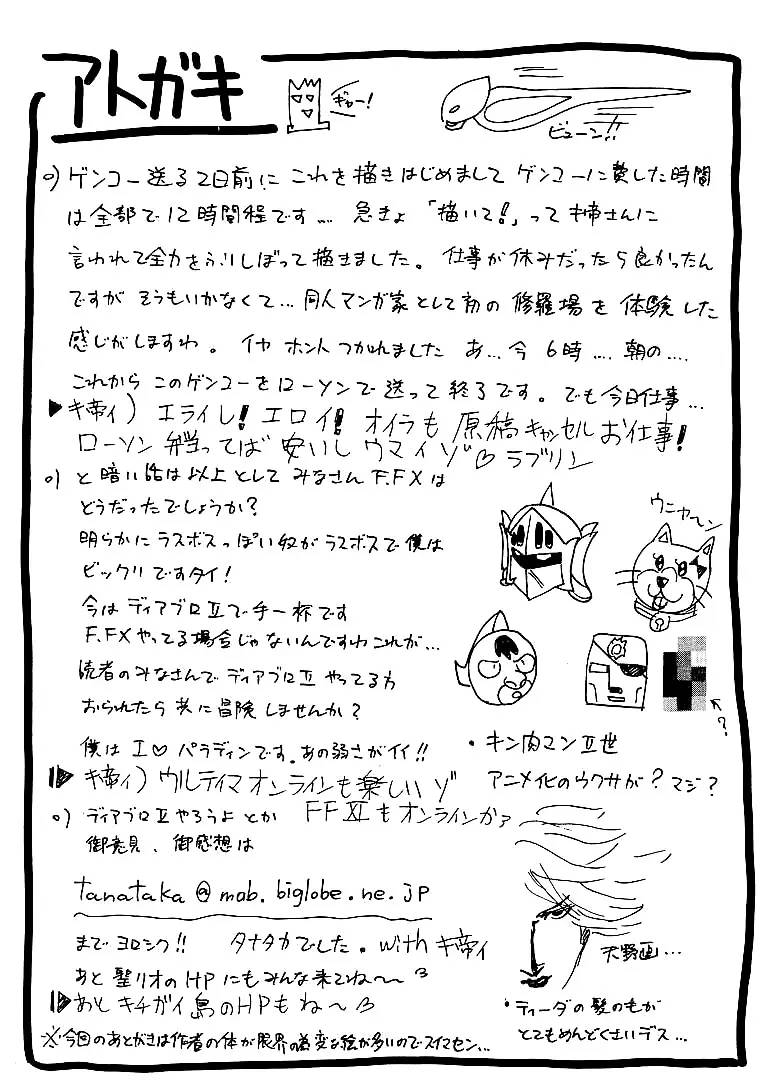 アトガキ
ギャー!
ビューン!!
○) ゲンコー送る2日前にこれを描きはじめまして ゲンコーに費した時間
は全部で12時間程です…. 急きょ「描いて!」って キ帝さんに
言われて全力をふりしぼって描きました。仕事が休みだったら良かったん
ですが そうもいかなくて… 同人マンガ家として初の 修羅場を 体験した
感じがしますわ。 イヤ ホント つかれました あ…今 6時…. 朝の….
これから このゲンコーをローソンで送って終了です。でも今日仕事…
▶キ帝ィ) エライし! エロイ! オイラも 原稿キャンセルお仕事!
ローソン 弁当ってば 安いし ウマイゾ♡ ラブリン
○) と 暗い話は以上として みなさん F.FXは
どうだったでしょうか?
明らかに ラスボスっぽい奴が ラスボスで僕は
ビックリですタイ!
今は ディアブロⅡで手一杯です
F.FXやってる場合じゃないんですわこれが…
読者のみなさんで ディアブロⅡ やってる方
おられたら 共に冒険しませんか?
僕は I♡パラディンです。あの弱さがイイ!!
▶キ帝ィ) ウルティマオンラインも楽しいゾ
ウニャ〜ン
↖?
・キン肉マンⅡ世
アニメ化のウワサが? マジ?
○) ディアブロⅡやろうよ とか FFⅪもオンラインか?
御意見、御感想は
tanataka@mob.biglobe.ne.jp
まで ヨロシク!! タナタカでした。with キ帝ィ
あと 聖リオのHPにもみんな来てね〜
▶あと キチガイ島のHPもね〜
天野画…
・ティーダの髪のもが
とてもめんどくさいデス…
※今回のあとがきは作者の体が限界の為変な絵が多いのでスイマセン…